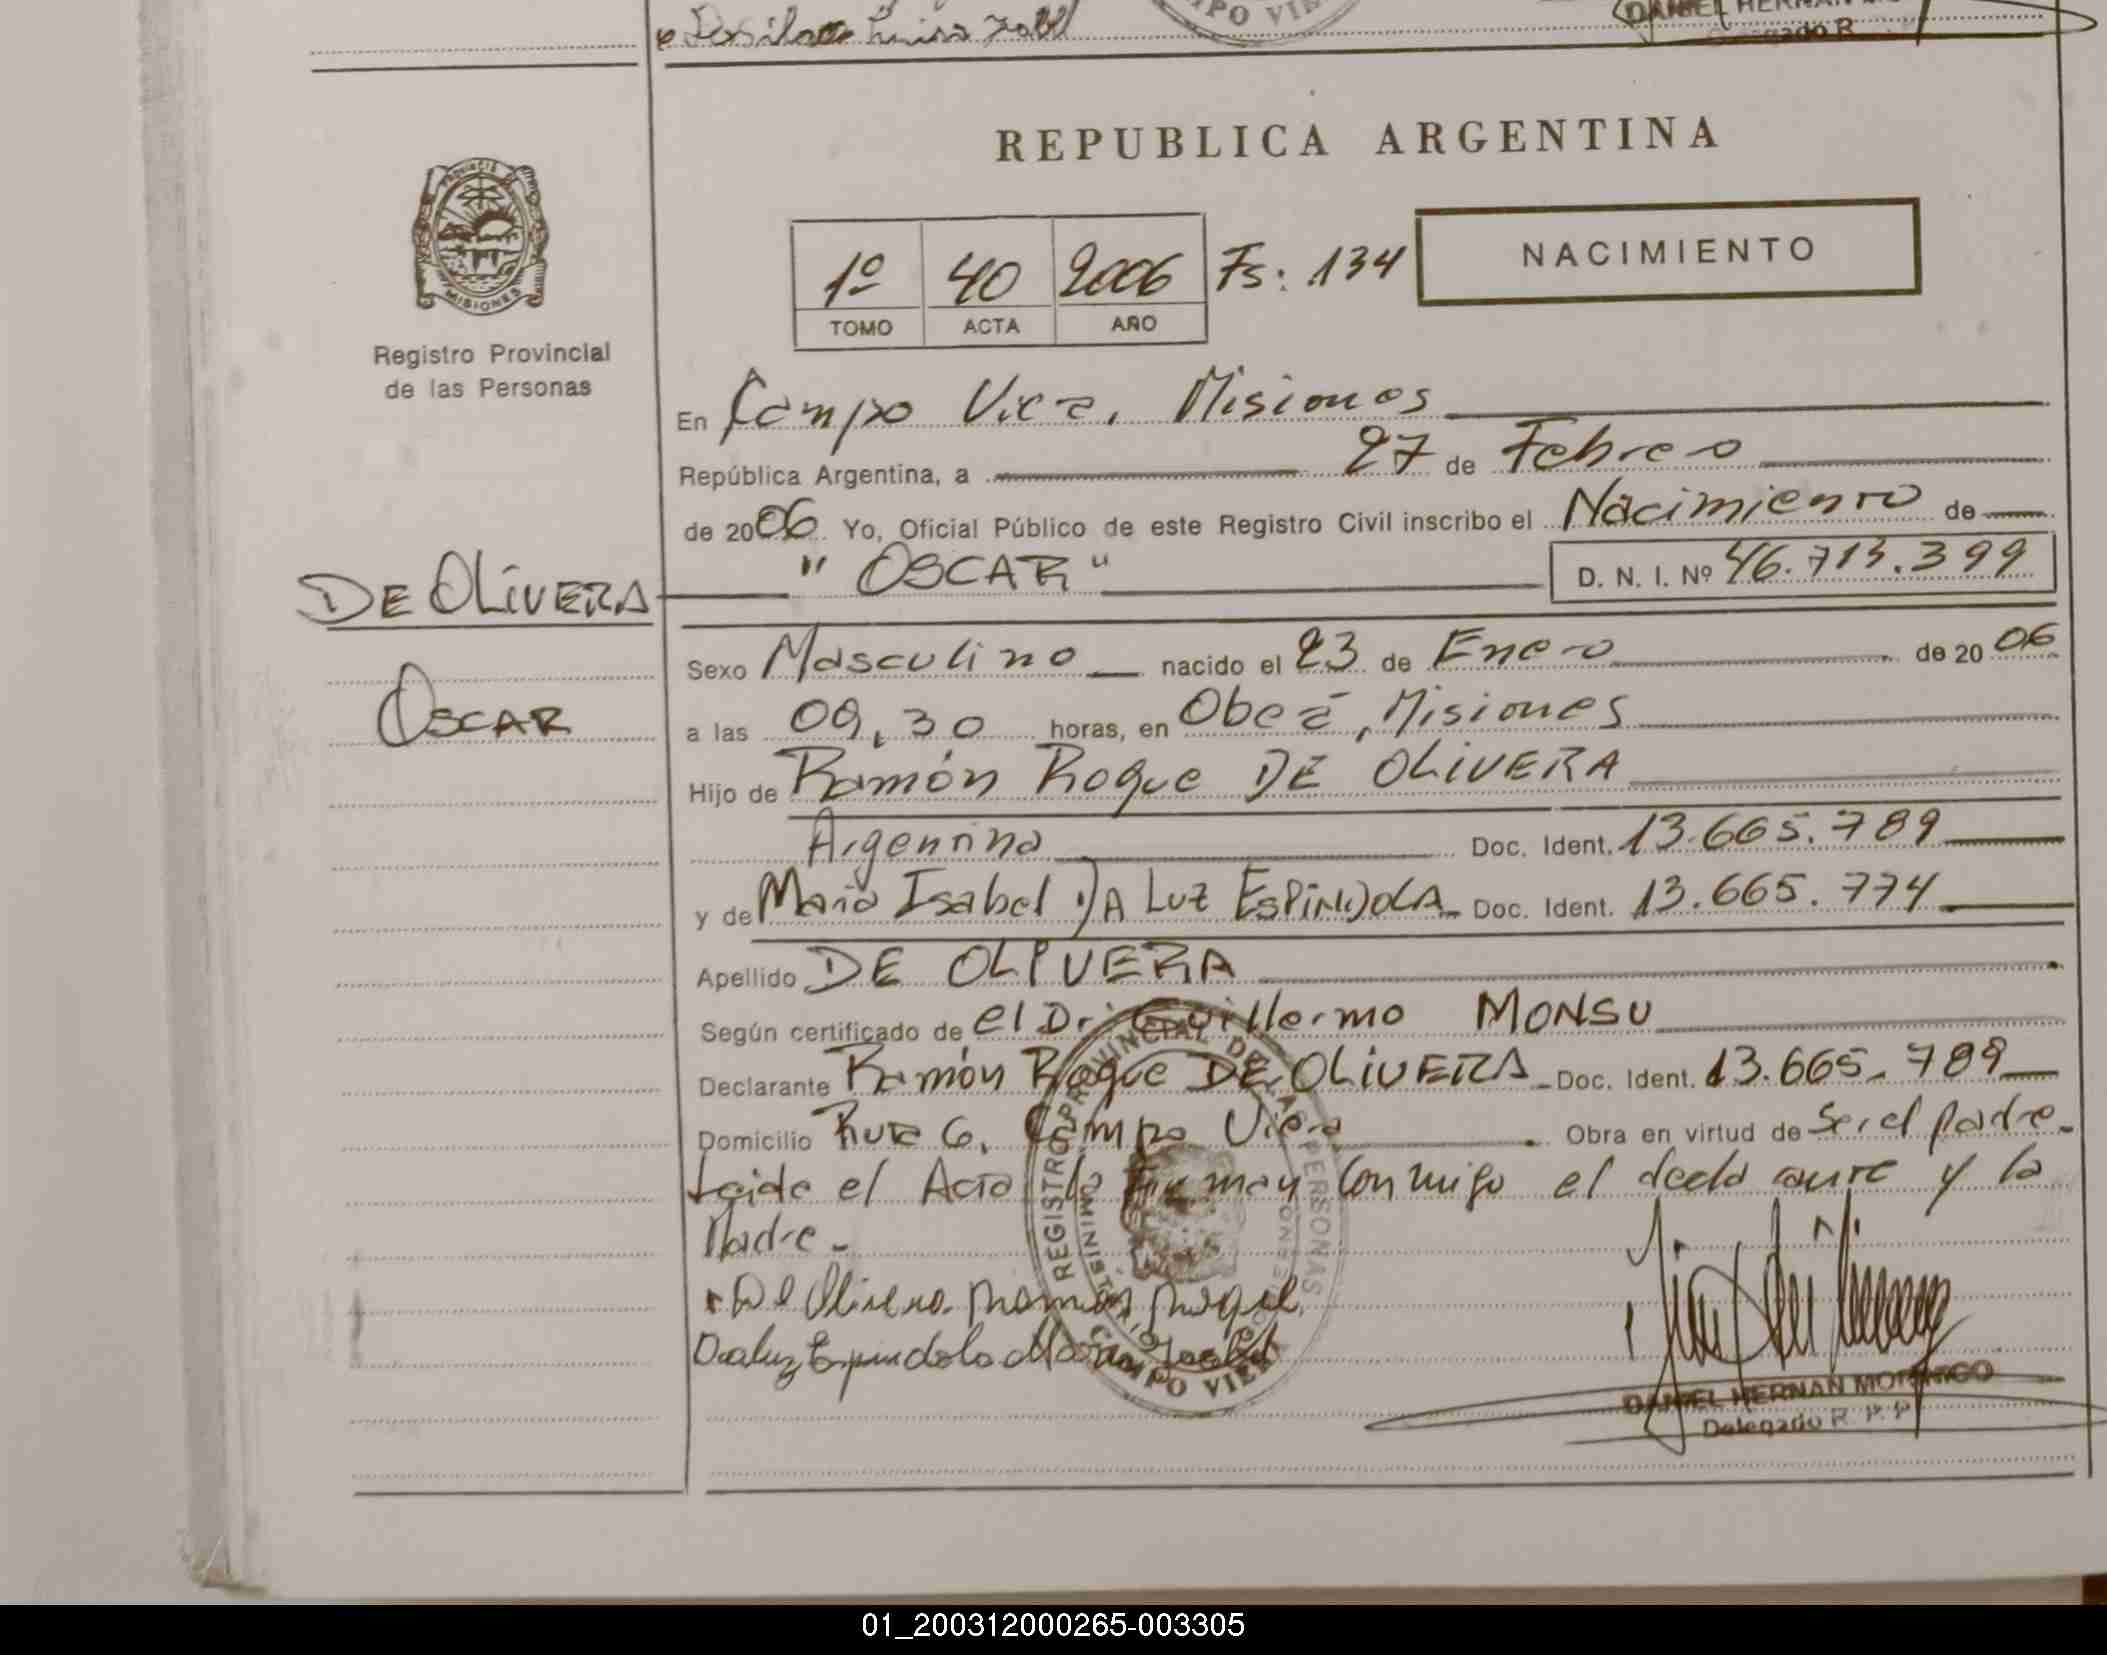 Luisa
CAMPO VIE
DANIEL HERNAN
REPUBLICA ARGENTINA
PROVINCIA DE
MISIONES
Registro Provincial
de las Personas
1º 40 2006 Fs: 134
TOMO ACTA AÑO
NACIMIENTO
En Campo Viera, Misiones
República Argentina, a 27 de Febrero
de 2006 Yo, Oficial Público de este Registro Civil inscribo el Nacimiento de
DE OLIVERA "OSCAR" D. N. I. Nº 46.713.399
Sexo Masculino nacido el 23 de Enero de 2006
OSCAR
a las 09,30 horas, en Oberá, Misiones
Hijo de Ramón Roque DE OLIVERA
Argentina Doc. Ident. 13.665.789
y de Maria Isabel DA LUZ ESPINDOLA Doc. Ident. 13.665.774
Apellido DE OLIVERA
Según certificado de el Dr. Guillermo MONSU
Declarante Ramón Roque DE OLIVERA Doc. Ident. 13.665.789
Domicilio Ruta 6, Campo Viera Obra en virtud de Ser el padre.
Leida el Acta la Firman Conmigo el declarante y la
Madre.-
De Olivera Ramon Roque
Daluz Espindola Maria Isabel
REGISTRO PROVINCIAL DE LAS PERSONAS
CAMPO VIERA
DANIEL HERNAN MORINIGO
Delegado R. P. P.
01_200312000265-003305